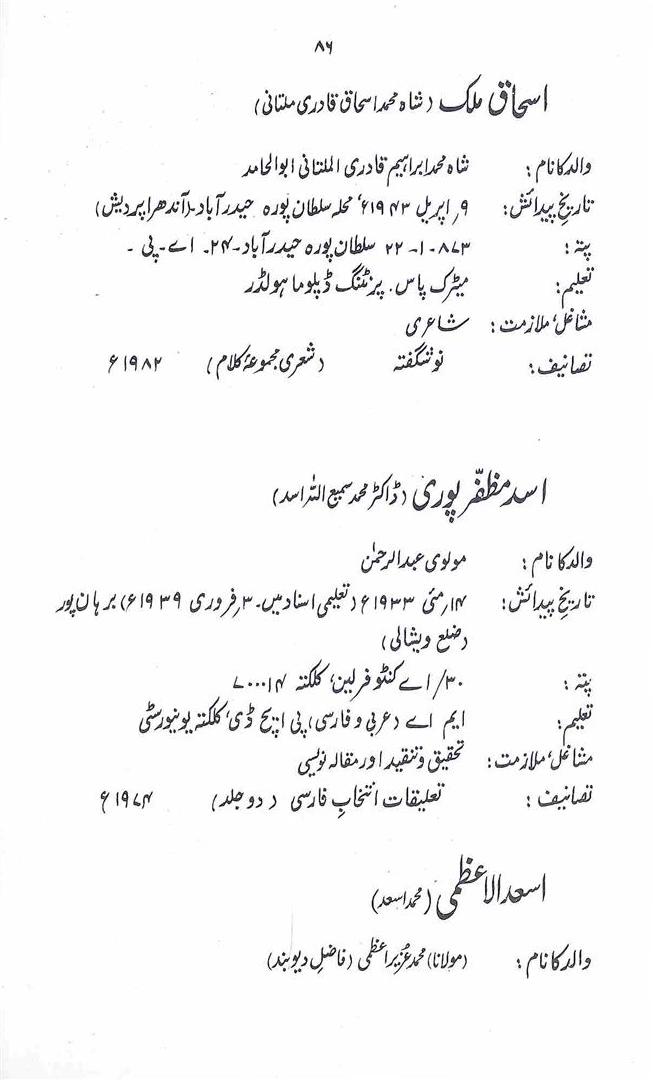 ۸۶
اسحاق ملک (شاہ محمد اسحاق قادری ملتانی)
والد کا نام: شاہ محمد ابراہیم قادری الملتانی ابوالحامد
تاریخِ پیدائش: ۹؍ اپریل ۱۹۴۳ء، محلہ سلطان پورہ حیدرآباد۔ (آندھرا پردیش)
پتہ: ۸۷۳-۱-۲۲ سلطان پورہ حیدرآباد۔ ۲۴۔ اے۔ پی۔
تعلیم: میٹرک پاس۔ پرنٹنگ ڈپلوما ہولڈر
مشاغل، ملازمت: شاعری
تصانیف: نوشگفتہ (شعری مجموعۂ کلام) ۱۹۸۲ء
اسد مظفّر پوری (ڈاکٹر محمد سمیع اللہ اسد)
والد کا نام: مولوی عبدالرحمٰن
تاریخِ پیدائش: ۱۴؍ مئی ۱۹۳۳ء (تعلیمی اسناد میں۔ ۳؍ فروری ۱۹۳۹ء) برہان پور
(ضلع ویشالی)
پتہ: ۳۰/اے کنٹوفرلین، کلکتہ ۷۰۰۰۱۴
تعلیم: ایم اے (عربی و فارسی)، پی ایچ ڈی، کلکتہ یونیورسٹی
مشاغل، ملازمت: تحقیق و تنقید اور مقالہ نویسی
تصانیف: تعلیقات انتخابِ فارسی (دو جلد) ۱۹۷۴ء
اسعد الاعظمی (محمد اسعد)
والد کا نام: (مولانا) محمد عُزیر اعظمی (فاضلِ دیوبند)